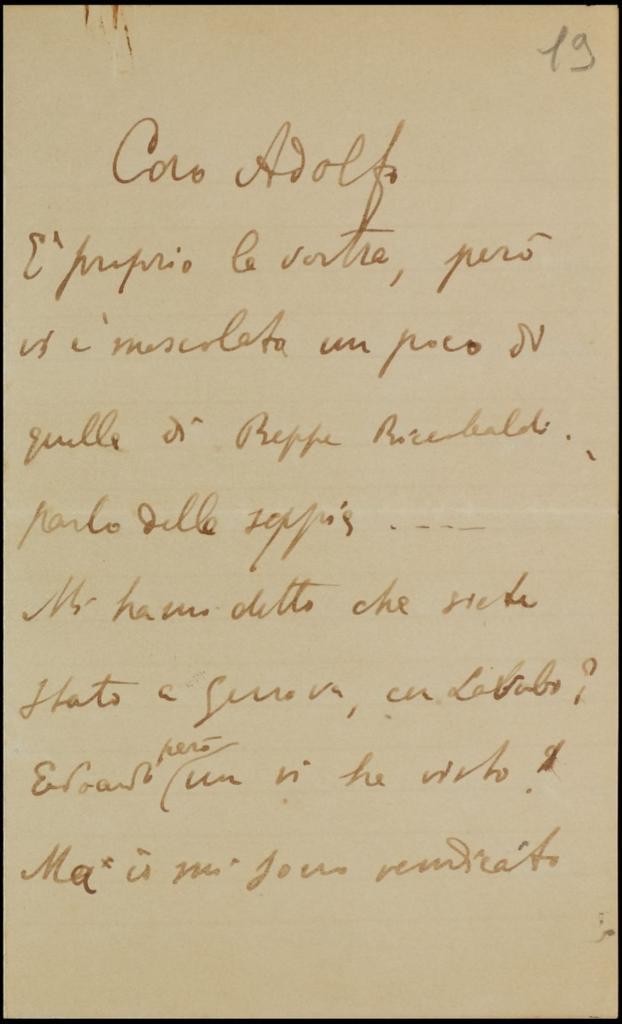 19
Caro Adolfo
E' proprio la vostra, però
vi è mescolata un poco di
quella di Beppe
parlo della seppia . - - -
Mi hanno detto che siete
stato a Genova, ?
Edoardo però non vi ha visto
Ma io mi sono vendicato